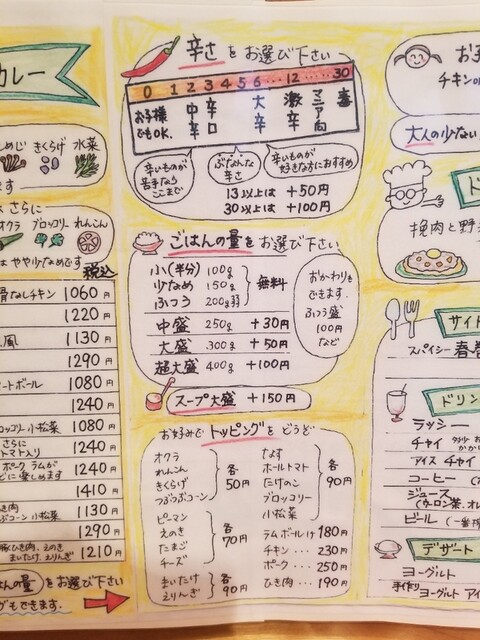 カレー
めじ きくらげ 水菜
ます
さらに
オクラ ブロッコリー れんこん
は やや少なめです
税込
骨なしチキン 1060円
1220円
風 1130円
1290円
ートボール 1080円
1240円
ロッコリー 小松菜 1080円
さらに
トマト入り 1240円
ポーク ラムが
どに楽しめます 1240円
1410円
ひき肉
ぶコーン 小松菜 1130円
1290円
豚ひき肉、えのき
まいたけ、エリンギ 1210円
はんの量 をお選び下さい
グもできます。
辛さ をお選び下さい
0 1 2 3 4 5 6 ‥ 12 ‥‥ 30
お子様でもOK. 中辛 辛口 大辛 激辛 マニア向 毒
辛いものが苦手ならここまで
ぶなんな辛さ
辛いものが好きな方におすすめ
13以上は +50円
30以上は +100円
ごはんの量をお選び下さい
小(半分) 100g
少なめ 150g
ふつう 200g弱
無料
中盛 250g +30円
大盛 300g +50円
超大盛 400g +100円
おかわりも
できます.
ふつう盛
100円
など
スープ大盛 +150円
お好みで トッピングを どうぞ
オクラ
れんこん
きくらげ
つぶつぶコーン
各50円
ピーマン
えのき
たまご
チーズ
各70円
まいたけ
えりんぎ
各90円
なす
ホールトマト
たけのこ
ブロッコリー
小松菜
各90円
ラムボール1ケ 180円
チキン ‥‥ 230円
ポーク ‥‥ 250円
ひき肉 ‥‥ 190円
お子
チキンor
大人の少ない
ド
挽肉と野
サイド
スパイシー 春巻
ドリン
ラッシー
チャイ
アイス チャイ
コーヒー
ジュース
(ウーロン茶、オレ
ビール (一番搾
デザート
ヨーグルト
手作り
ヨーグルト アイ